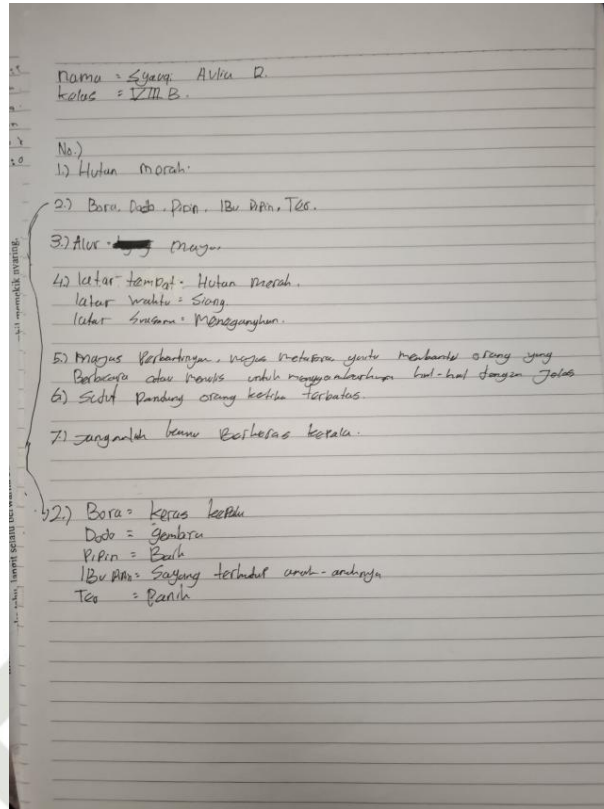 nama = Syauqi Aulia R.
kelas = VIII B.
No.)
1.) Hutan merah.
2.) Bora, Dodo, Pipin, IBu Pipin, Teo.
3.) Alur = maju.
4.) latar tempat = Hutan merah.
latar waktu = Siang.
latar Suasana = Menegangkan.
5.) majas Perbandingan, majas metafora yaitu membantu orang yang
Berbicara atau menulis untuk menggambarkan hal-hal dengan Jelas
6.) Sudut Pandang orang ketiga terbatas.
7.) Janganlah kamu Berkeras kepala.
2.) Bora = keras kepala
Dodo = gembira
Pipin = Baik
IBu Pipin = Sayang terhadap anak-anaknya
Teo = Panik
memekik nyaring.
langit selalu